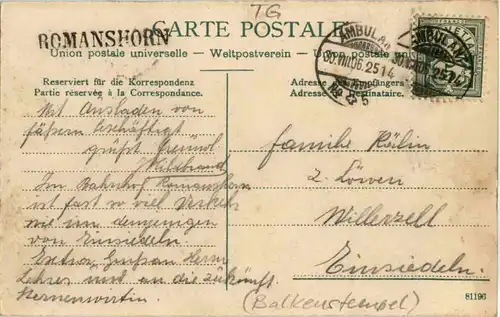 TG
CARTE POSTALE
ROMANSHORN
Union postale universelle. – Weltpostverein. – Union postale
Reserviert für die Korrespondenz
Partie réservée à la Correspondance.
Adresse des Empfängers
Adresse du Destinataire.
AMBULANT
30.VIII.06.2514
AMBULANT
HELVETIA
Mit Ausladen von
fässern beschäftigt
grüßt freundl
Wildbrand
Im Bahnhof Romanshorn
ist fast so viel Verkehr
wie in demjenigen
von Einsiedeln.
Extra Gruß an Herrn
Lehrer und an die zukünft.
Sternenwirtin.
familie Kälin
z. Löwen
Willerzell
Einsiedeln.
(Balkenstempel)
81196